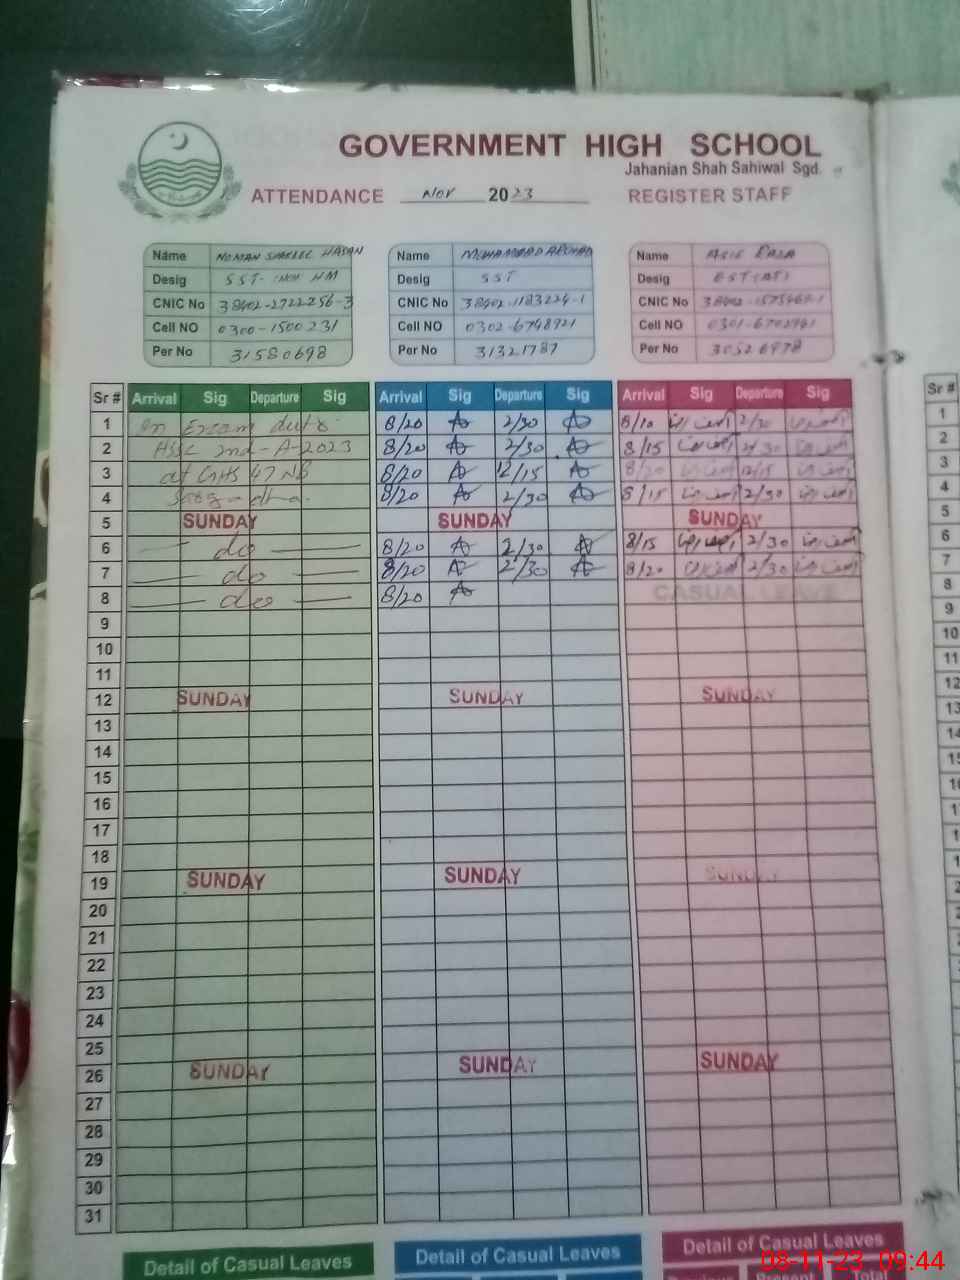 GOVERNMENT HIGH SCHOOL
Jahanian Shah Sahiwal Sgd.
ATTENDANCE Nov 2023 REGISTER STAFF
Name NOMAN SHAKEEL HASAN
Desig SST- HM
CNIC No 38402-2722256-3
Cell NO 0300-1500231
Per No 31580698
Name MUHAMMAD ARSHAD
Desig SST
CNIC No 38402-1183224-1
Cell NO 0302-6748921
Per No 31321787
Name ASIF RAZA
Desig EST(AT)
CNIC No
Cell NO
Per No
Sr # Arrival Sig Departure Sig Arrival Sig Departure Sig Arrival Sig Departure Sig Sr #
1 On Exam duty 8/20 2/30 8/10 آصف رضا 2/30 1
2 HSSC 2nd-A-2023 8/20 2/30 8/15 2/30 2
3 at GHS 47 NB 8/20 12/15 8/20 12/15 3
4 Sargodha. 8/20 2/30 8/15 آصف رضا 2/30 آصف رضا 4
5 SUNDAY SUNDAY SUNDAY 5
6 do 8/20 2/30 8/15 آصف رضا 2/30 آصف رضا 6
7 do 8/20 2/30 8/20 2/30 آصف رضا 7
8 do 8/20 CASUAL LEAVE 8
9 9
10 10
11 11
12 SUNDAY SUNDAY SUNDAY 12
13 13
14 14
15
16
17
18
19 SUNDAY SUNDAY SUNDAY
20
21
22
23
24
25
26 SUNDAY SUNDAY SUNDAY
27
28
29
30
31
Detail of Casual Leaves Detail of Casual Leaves Detail of Casual Leaves
08-11-23 09:44